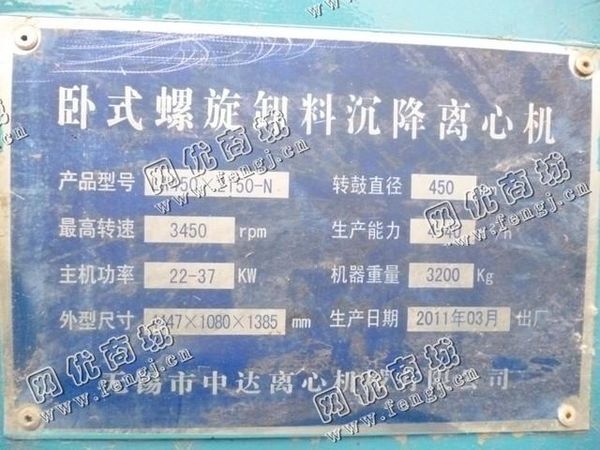 卧式螺旋卸料沉降离心机
产品型号 50-N 转鼓直径 450
最高转速 3450 rpm 生产能力
主机功率 22-37 KW 机器重量 3200 Kg
外型尺寸 47×1080×1385 mm 生产日期 2011年03月 出厂
锡市中达离心机 公司
网优商城
www.fengj.cn
网优商城
www.fengj.cn
网优商城
www.fengj.cn
网优商城
www.fengj.cn
网优商城
www.fengj.cn